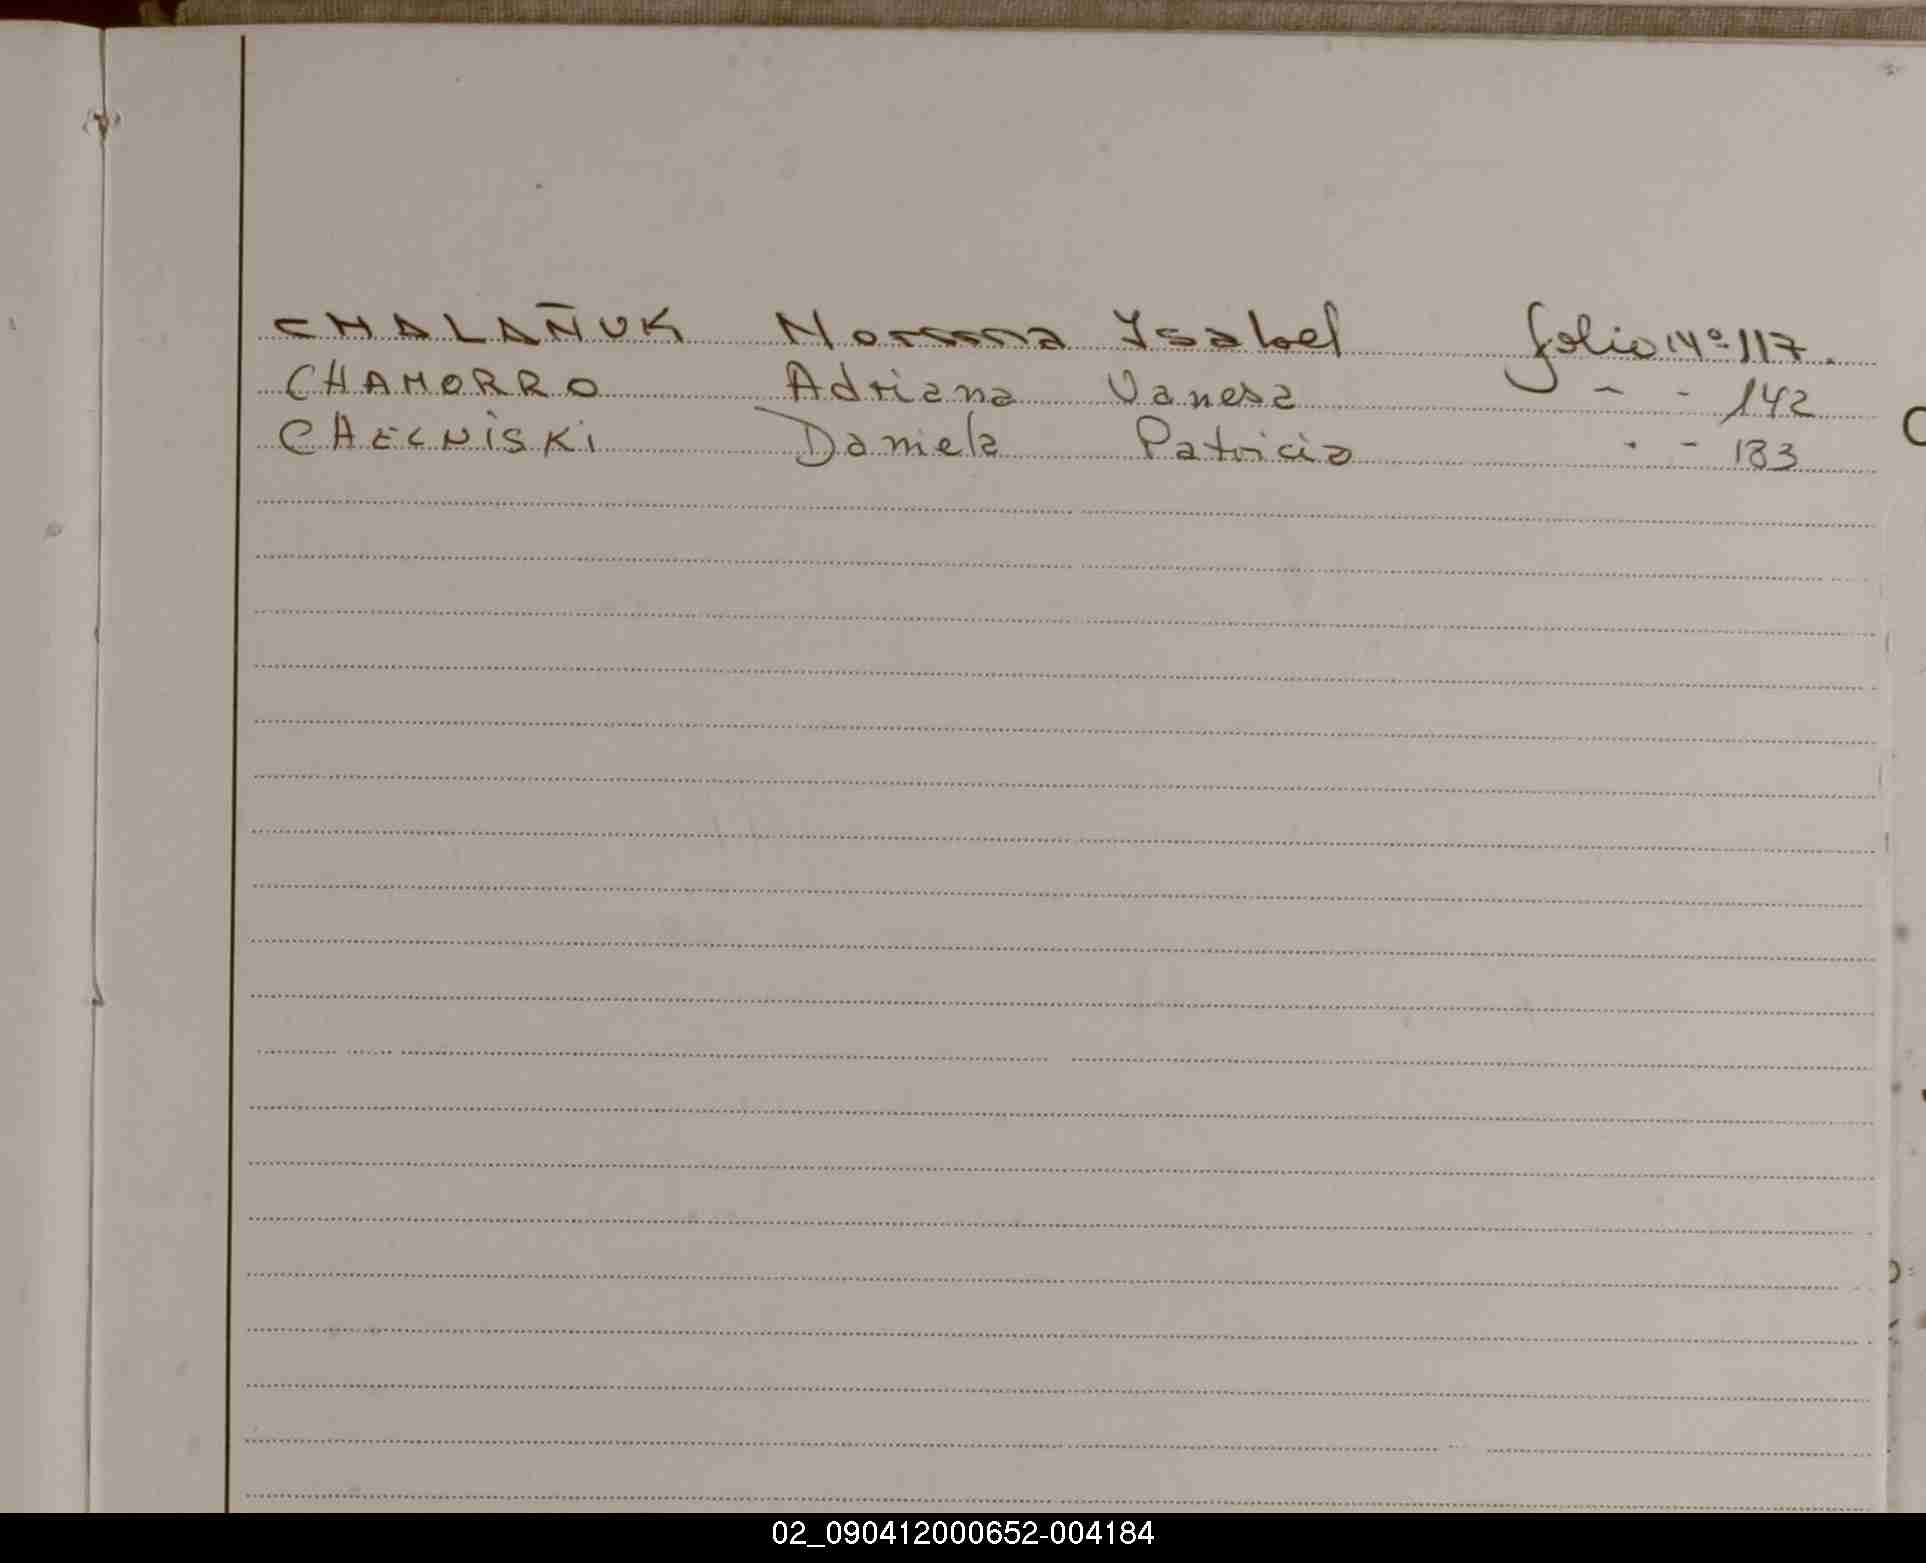 CHALAÑUK Norma Isabel folio Nº 117.
CHAMORRO Adriana Vanesa " " 142
CHELNISKI Daniela Patricia " " 183
02_090412000652-004184